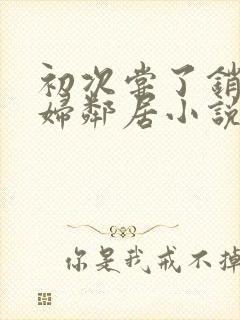 初次尝了銷
婦鄰居小說
你是我戒不掉